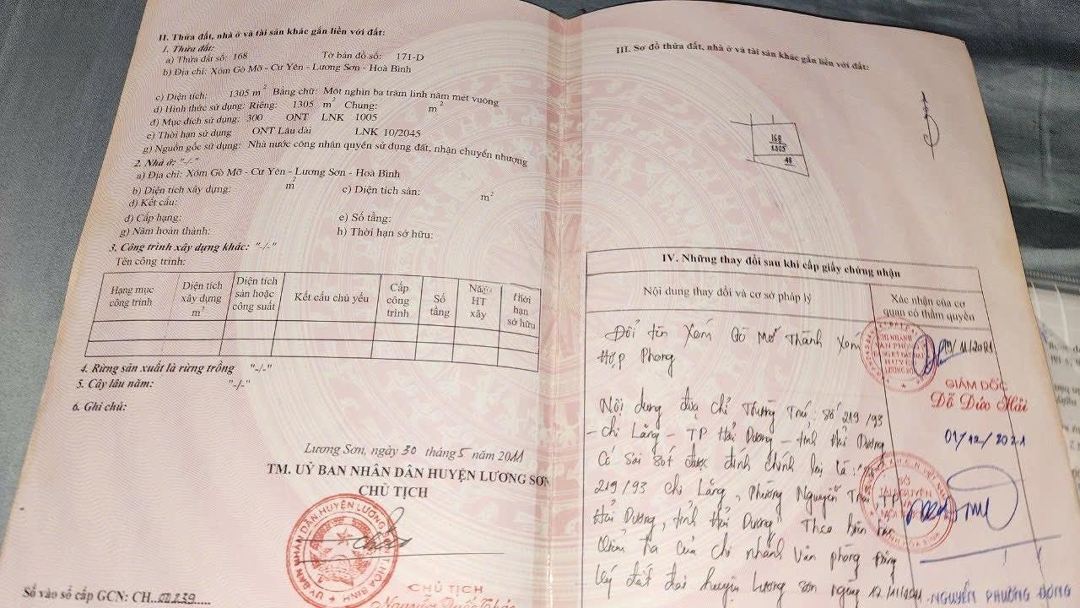 II. Thửa đất, nhà ở và tài sản khác gắn liền với đất:
1. Thửa đất:
a) Thửa đất số: 168 Tờ bản đồ số: 171-D
b) Địa chỉ: Xóm Gò Mỡ - Cư Yên - Lương Sơn - Hoà Bình
c) Diện tích: 1305 m² Bằng chữ: Một nghìn ba trăm linh năm mét vuông
d) Hình thức sử dụng: Riêng: 1305 m² Chung: m²
đ) Mục đích sử dụng: 300 ONT LNK 1005
e) Thời hạn sử dụng ONT Lâu dài LNK 10/2045
g) Nguồn gốc sử dụng: Nhà nước công nhận quyền sử dụng đất, nhận chuyển nhượng
2. Nhà ở: "-/-"
a) Địa chỉ: Xóm Gò Mỡ - Cư Yên - Lương Sơn - Hoà Bình
b) Diện tích xây dựng: m² c) Diện tích sàn: m²
d) Kết cấu:
đ) Cấp hạng: e) Số tầng:
g) Năm hoàn thành: h) Thời hạn sở hữu:
3. Công trình xây dựng khác: "-/-"
Tên công trình:
Hạng mục công trình
Diện tích xây dựng m²
Diện tích sàn hoặc công suất
Kết cấu chủ yếu
Cấp công trình
Số tầng
Năm HT xây
Thời hạn sở hữu
4. Rừng sản xuất là rừng trồng "-/-"
5. Cây lâu năm: "-/-"
6. Ghi chú:
Lương Sơn, ngày 30 tháng 5 năm 2011
TM. UỶ BAN NHÂN DÂN HUYỆN LƯƠNG SƠN
CHỦ TỊCH
CHỦ TỊCH
Số vào sổ cấp GCN: CH
III. Sơ đồ thửa đất, nhà ở và tài sản khác gắn liền với đất:
168
1305
48
IV. Những thay đổi sau khi cấp giấy chứng nhận
Nội dung thay đổi và cơ sở pháp lý
Xác nhận của cơ quan có thẩm quyền
Đổi tên Xóm Gò Mỡ Thành Xóm
Hợp Phong
19/11/2021
GIÁM ĐỐC
Đỗ Đức Hải
Nội dung địa chỉ Thường Trú: Số 219/93
- Chi Lăng - TP Hải Dương - tỉnh Hải Dương
01/12/2021
Có Sai Sót được đính chính lại là: Số
219/93 Chi Lăng, Phường Nguyễn Trãi TP
Hải Dương, tỉnh Hải Dương Theo biên bản
kiểm tra của Chi nhánh Văn phòng Đăng
ký đất đai huyện Lương Sơn ngày 12/11/2021
NGUYỄN PHƯƠNG ĐÔNG